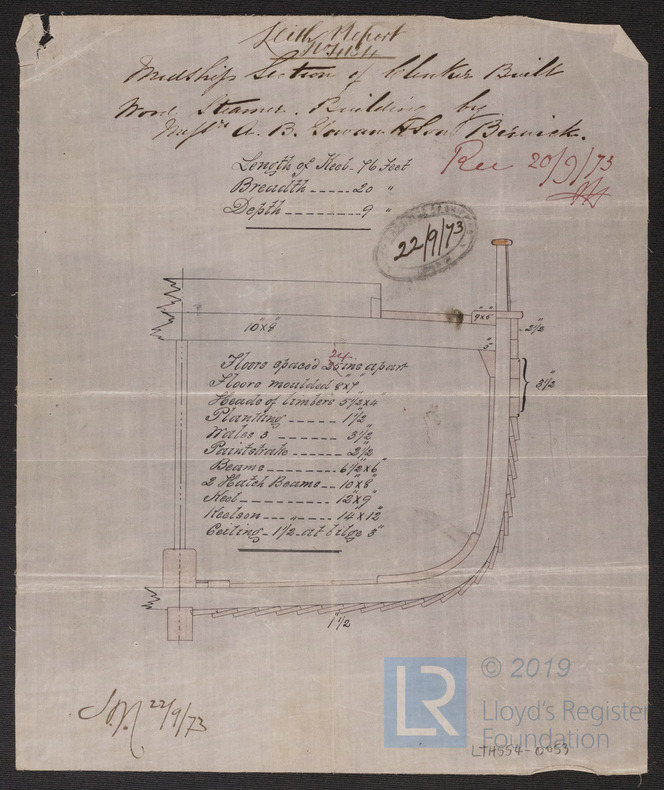 Leith Report
No 7434
Midship Section of Clinker Built
Wood Steamer. Building by
Messrs A. B. Gowan & Son Berwick.
Length of Keel - 76 Feet
Breadth ----- 20 "
Depth --------- 9 "
Rec 20/9/73
22/9/73
10"x8"
9"x5"
2 1/2
5"
3 1/2
24
Floors spaced ins apart
Floors moulded 8"x7"
Heads of timbers 5 1/2"x4"
Planking ---- 1 1/2"
Wales 3 ------ 3 1/2"
Paintstrake ---- 2 1/2"
Beams ------- 6 1/2"x6"
2 Hatch Beams -- 10"x8"
Keel ---------- 12"x9"
Keelson --- " ---- 14"x12"
Ceiling - 1 1/2" at bilge 3"
1 1/2
22/9/73
© 2019
LR
Lloyd's Register
Foundation
LTHS54-0053